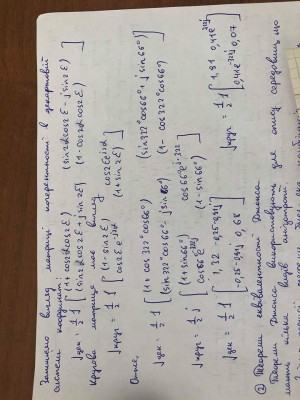 Запишемо вигляд матриці когерентності в декартовій
системі координат:
J дек = 1/2 J [ (1 + cos2α cos2ε) (sin2α cos2ε - j sin2ε)
(sin2α cos2ε + j sin2ε) (1 - cos2α cos2ε) ]
Кругова матриця має вигляд
J круг = 1/2 J [ (1 - sin2ε) cos2ε e^j2α
cos2ε e^-j2α (1 + sin2ε) ]
Отже,
J дек = 1/2 J [ (1 + cos322° cos66°) (sin322° cos66° + j sin66°)
(sin322° cos66° - j sin66°) (1 - cos322° cos66°) ]
J круг = 1/2 J [ (1 + sin66°) cos66° e^j·322
cos66° (1 - sin66°) ]
J дек = 1/2 J [ 1,32 -0,25 0,91j
-0,25 0,91j 0,68 ]
J круг = 1/2 J [ 1,91 0,41e^322j
0,41e 0,07 ]
② Теореми еквивалентності Джонса.
Теореми Джонса використовують для опису середовищ що
мають кілька видів анізотропії